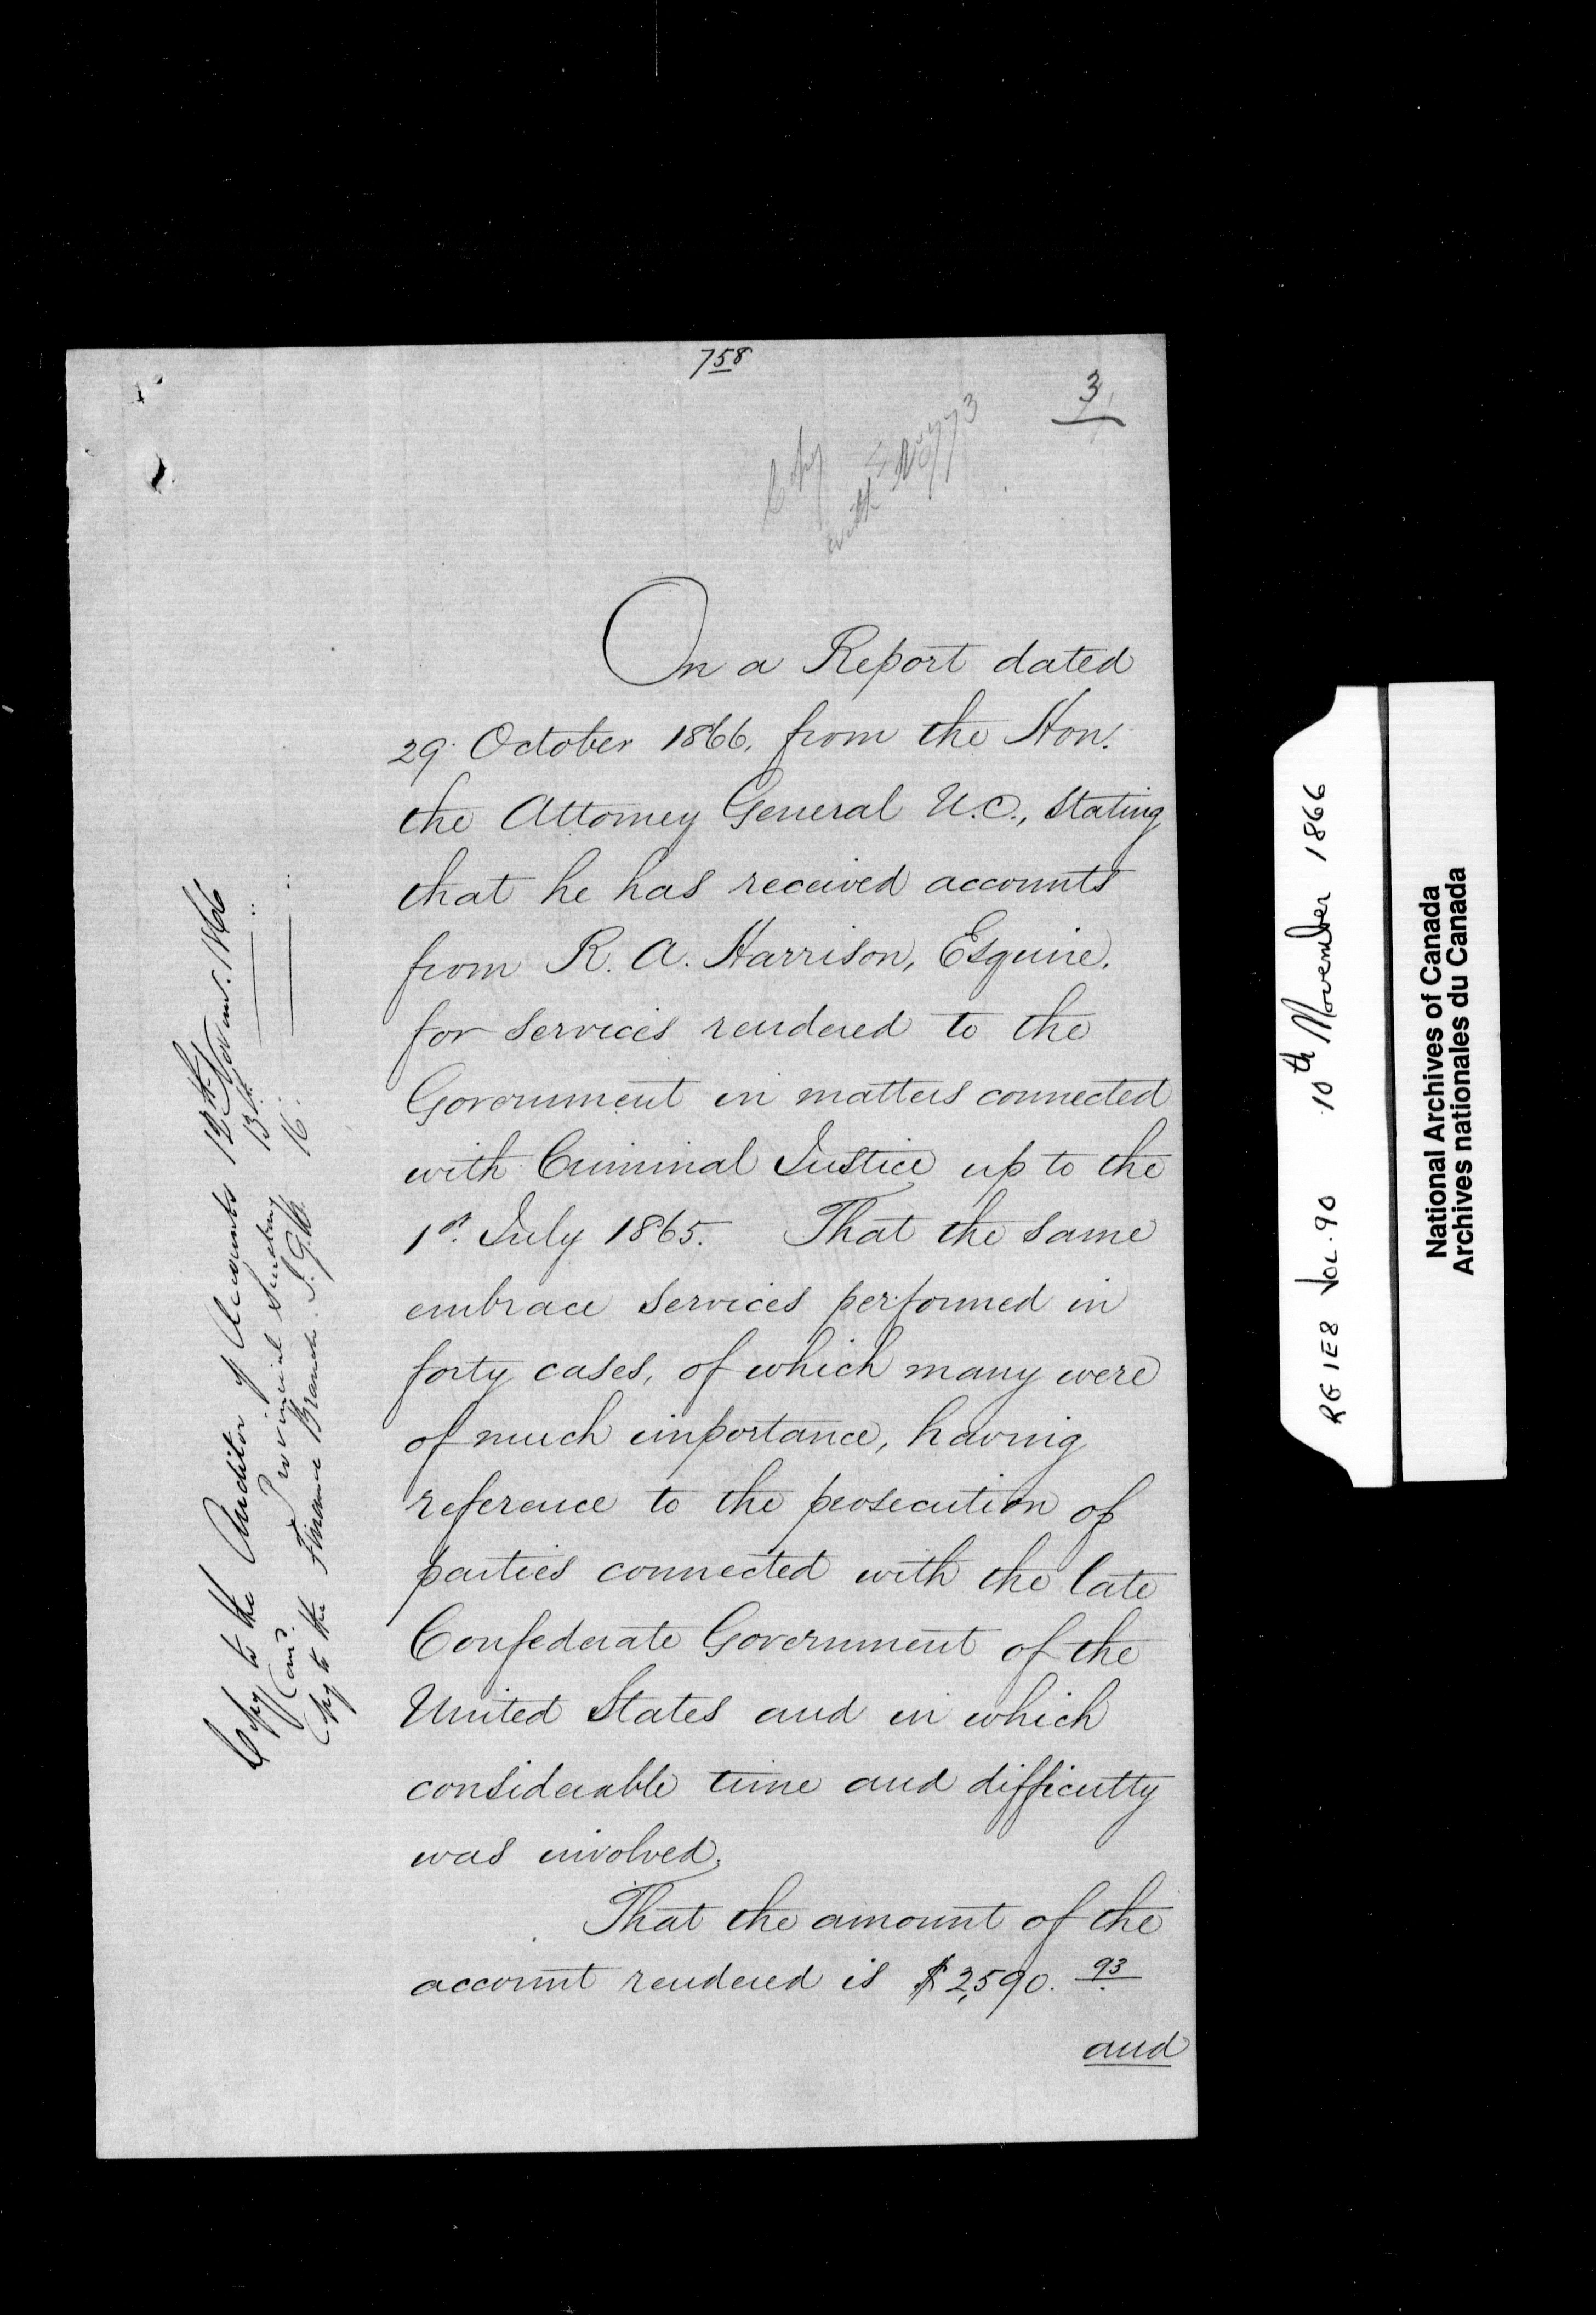 758
3
Copy
with No 773
On a Report dated
29. October 1866, from the Hon.
the Attorney General U.C., stating
that he has received accounts
from R. A. Harrison, Esquire.
for services rendered to the
Government in matters connected
with Criminal Justice up to the
1st. July 1865. That the same
embrace services performed in
forty cases, of which many were
of much importance, having
reference to the prosecution of
parties connected with the late
Confederate Government of the
United States and in which
considerable time and difficulty
was involved.
That the amount of the
account rendered is $2,590. 93
and
Copy to the Auditor of Accounts 12th Novem. 1866
Provincial Secretary 13th.
Copy to the Finance Branch. 16.
RG 1E8 VOL. 90 10th November 1866
National Archives of Canada
Archives nationales du Canada